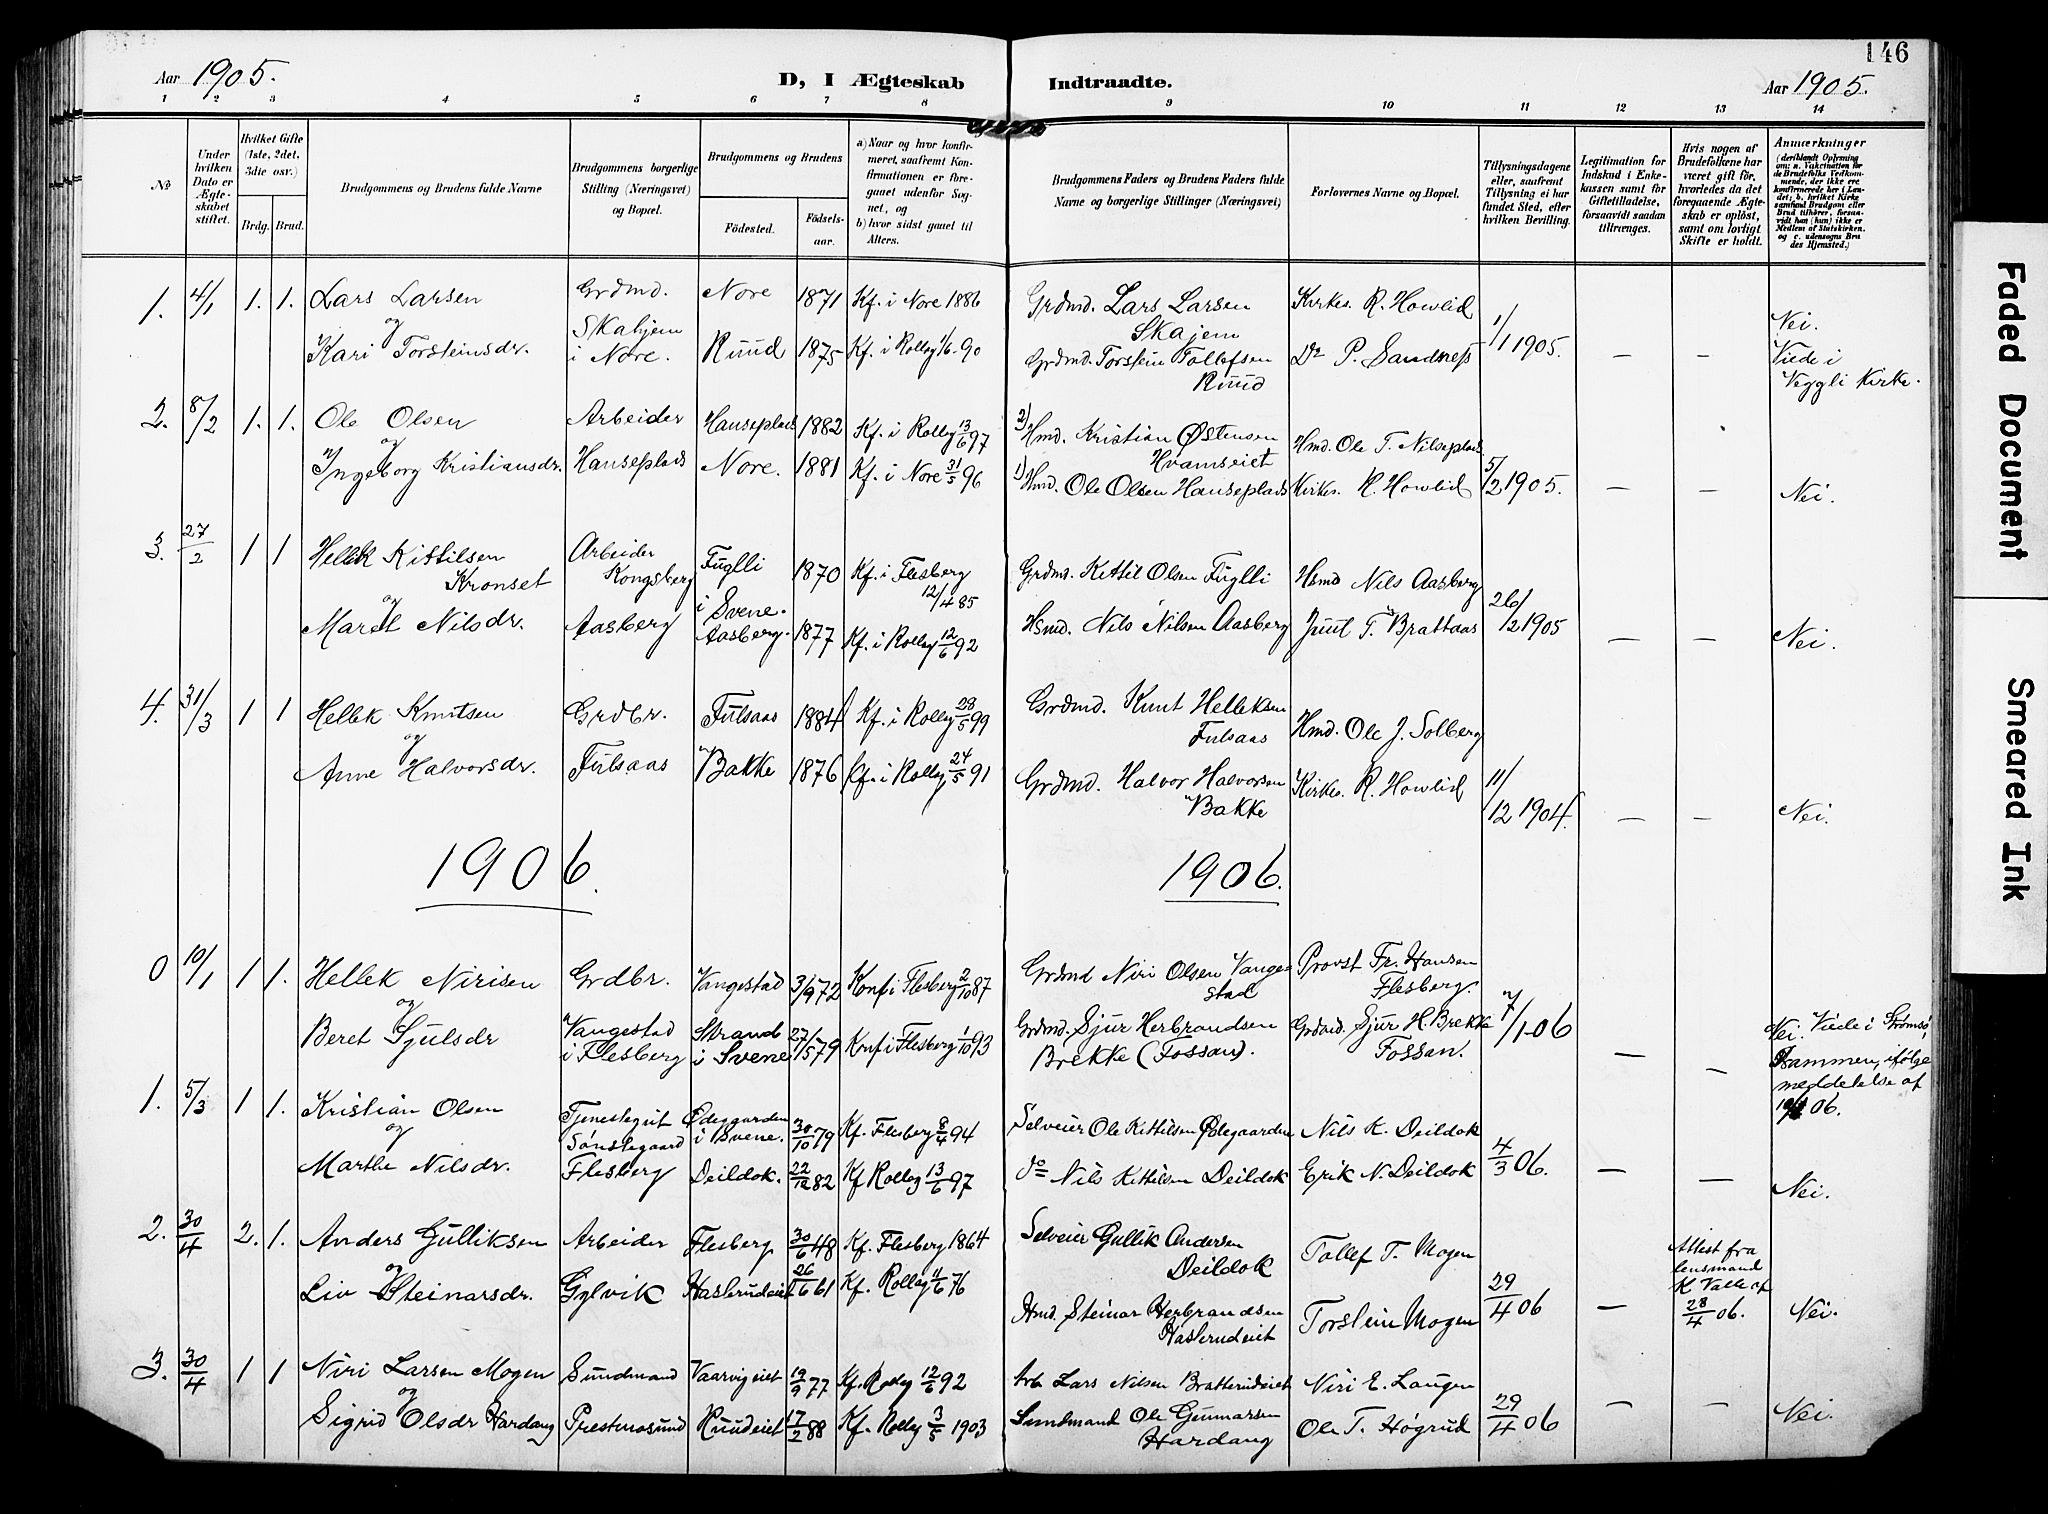 146
Aar 1905.
D, I Ægteskab Indtraadte.
Aar 1905.
1 2 3 4 5 6 7 8 9 10 11 12 13 14
No
Under hvilken Dato er Ægteskabet stiftet.
Hvilket Gifte (1ste, 2det, 3die osv.)
Brdg. Brud.
Brudgommens og Brudens fulde Navne
Brudgommens borgerlige Stilling (Næringsvei) og Bopæl.
Brudgommens og Brudens
Födested.
Födselsaar.
a) Naar og hvor konfirmeret, saafremt Konfirmationen er foregaaet udenfor Sognet, og
b) hvor sidst gaaet til Alters.
Brudgommens Faders og Brudens Faders fulde Navne og borgerlige Stillinger (Næringsvei)
Forlovernes Navne og Bopæl.
Tillysningsdagene eller, saafremt Tillysning ei har fundet Sted, efter hvilken Bevilling.
Legitimation for Indskud i Enkekassen samt for Giftetilladelse, forsaavidt saadan tiltrænges.
Hvis nogen af Brudefolkene har været gift för, hvorledes da det foregaaende Ægteskab er oplöst, samt om lovligt Skifte er holdt.
Anmærkninger
(deriblandt Oplysning om: a. Vakcination for de Brudefolks Vedkommende, der ikke ere konfirmerede her i Landet; b. hvilket Kirkesamfund Brudgom eller Brud tilhörer, forsaavidt han (hun) ikke er Medlem af Statskirken, og c. udensogns Brudes Hjemsted.)
1. 4/1 1. 1. Lars Larsen Grdmd. Nore 1871 Kf. i Nore 1886 Grdmd. Lars Larsen Kirkes. R. Howlid
og Skahjem Skajem 1/1 1905. Nei.
Kari Torsteinsdr. i Nore. Ruud 1875 Kf. i Rollag 1/6-90 Grdmd. Torstein Tollefsen Do P. Sandness – – Viede i
Ruud Veggli Kirke.
2. 8/2 1. 1. Ole Olsen Arbeider Hanseplads 1882 Kf. i Rollag 13/6 97 2) Hmd. Kristian Østensen Hmd. Ole T. Nilseplads
og Hvamseiet
Ingeborg Kristiansdr. Hanseplads Nore. 1881 Kf. i Nore 31/5 96 1) Hmd. Ole Olsen Hanseplads Kirkes. R. Howlid 5/2 1905. – – Nei.
3. 27/2 1 1 Hellek Kittilsen Arbeider Fuglli 1870 Kf. i Flesberg Grdmd. Kettil Olsen Fuglli Hsmd Nils Aasberg
Kronset Kongsberg i Svene. 12/4 85
og
Marit Nilsdr. Aasberg Aasberg. 1877 Kf. i Rollag 12/6 92 Hsmd. Nils Nilsen Aasberg Juut T. Brattaas 26/2 1905 – – Nei.
4. 31/3 1 1 Hellek Knutsen Grdbr. Fulsaas 1884 Kf. i Rollag 28/5 99 Grdmd. Knut Helleksen Hmd. Ole J. Solberg
og Fulsaas
Anne Halvorsdr. Fulsaas Bakke 1876 Kf. i Rollag 24/5 91 Grdmd. Halvor Halvorsen Kirkes. R. Howlid 11/12 1904. – – Nei.
Bakke
1906. 1906.
0 10/1 1 1. Hellek Nirisen Grdbr. Vangestad 3/9 72 Konf i Flesberg 2/10 87 Grdmd Niri Olsen Vangestad Provst Fr. Hansen
og Flesberg.
Beret Sjulsdr Vangestad Strand 27/5 79 Knf i Flesberg 1/10 93 Grdmd. Sjur Herbrandsen Grdmd. Sjur H. Brekke 7/1-06 – – Nei. Viede i Strømsö
i Flesberg i Svene Brekke (Fossan). Fossan. Drammen, ifölge
meddelelse af
06.
1. 5/3 1 1. Kristian Olsen Tjenestegut Ødegaarden 30/10 79 Kf. Flesberg 8/4 94 Selveier Ole Kittilsen Ødegaarden Nils K. Deildok
og Sønstegaard i Svene.
Marthe Nilsdr. Flesberg Deildok. 22/12 82 Kf Rollag 13/6 97 do Nils Kittilsen Deildok Erik N. Deildok 4/3 06. – – Nei.
2. 30/4 2. 1. Anders Gulliksen Arbeider Flesberg 30/6 48 Kf. Flesberg 1864 Selveier Gullik Andersen Tollef T. Mogen Attest fra
og Deildok lensmand
Liv Steinarsdr. Gylvik Haslerudeiet 26/6 61 Kf. Rollag 11/6 76 Hmd. Steinar Herbrandsen Torstein Mogen 29/4 06 – K Valle af
Haslerudeiet 28/4 06. Nei.
3. 30/4 1 1 Niri Larsen Mogen Sundmand Vaarvigeiet 19/9 77 Kf. Rollag 12/6 92 Arb Lars Nilsen Bratterudeiet Niri E. Laugen
og
Sigrid Olsdr Hardang Prestmosund Ruudeiet 17/2 88 Kf. Rollag 3/5 1903 Sundmand Ole Gunnarsen Ole T. Høgrud 29/4 06 – – Nei.
Hardang
Faded Document
Smeared Ink